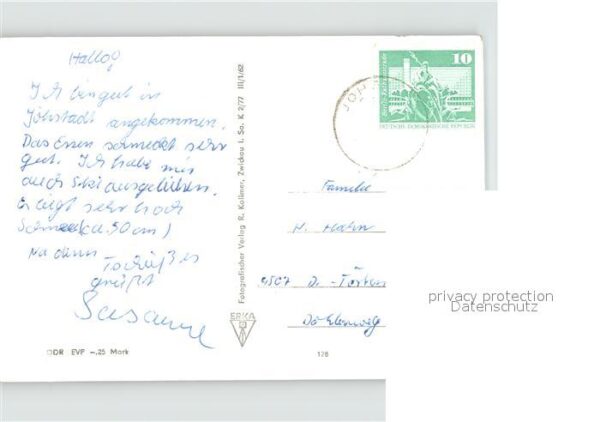 Hallo,
Ich bin gut in
Jöhstadt angekommen.
Das Essen schmeckt sehr
gut. Ich habe mir
auch Ski ausgeliehen.
Es liegt sehr hoch
Schnee (ca. 50 cm)
Na dann
Tschüß es
grüßt
Susanne
DDR EVP -,25 Mark
Fotografischer Verlag R. Kallmer, Zwickau i. Sa. K 2/77 III/1/62
ERKA
10
DEUTSCHE DEMOKRATISCHE REPUBLIK
JÖH
Familie
H. Hahn
4507 D.-Törten
126
privacy protection
Datenschutz